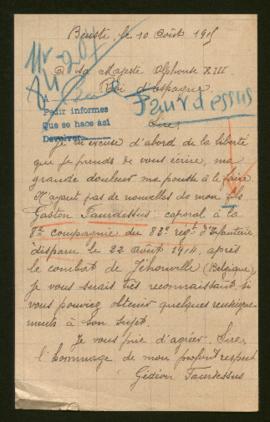 le 10 Août 1915
A Sa Majesté Alphonse XIII
Roi d'Espagne
Faurdessus
Pedir informes
Que se hace así
Devolver
Sire,
Je m'excuse d'abord de la liberté
que je prends de vous écrire, ma
grande douleur me pousse à le faire
N'ayant pas de nouvelles de mon fils
Gaston Faurdessus, caporal à la
8e compagnie du 83e régt d'Infanterie
disparu le 22 août 1914, après
le combat de Jéhonville (Belgique),
Je vous serais très reconnaissant si
vous pouviez obtenir quelques renseigne-
ments à son sujet.
Je vous prie d'agréer, Sire,
l'hommage de mon profond respect
Faurdessus